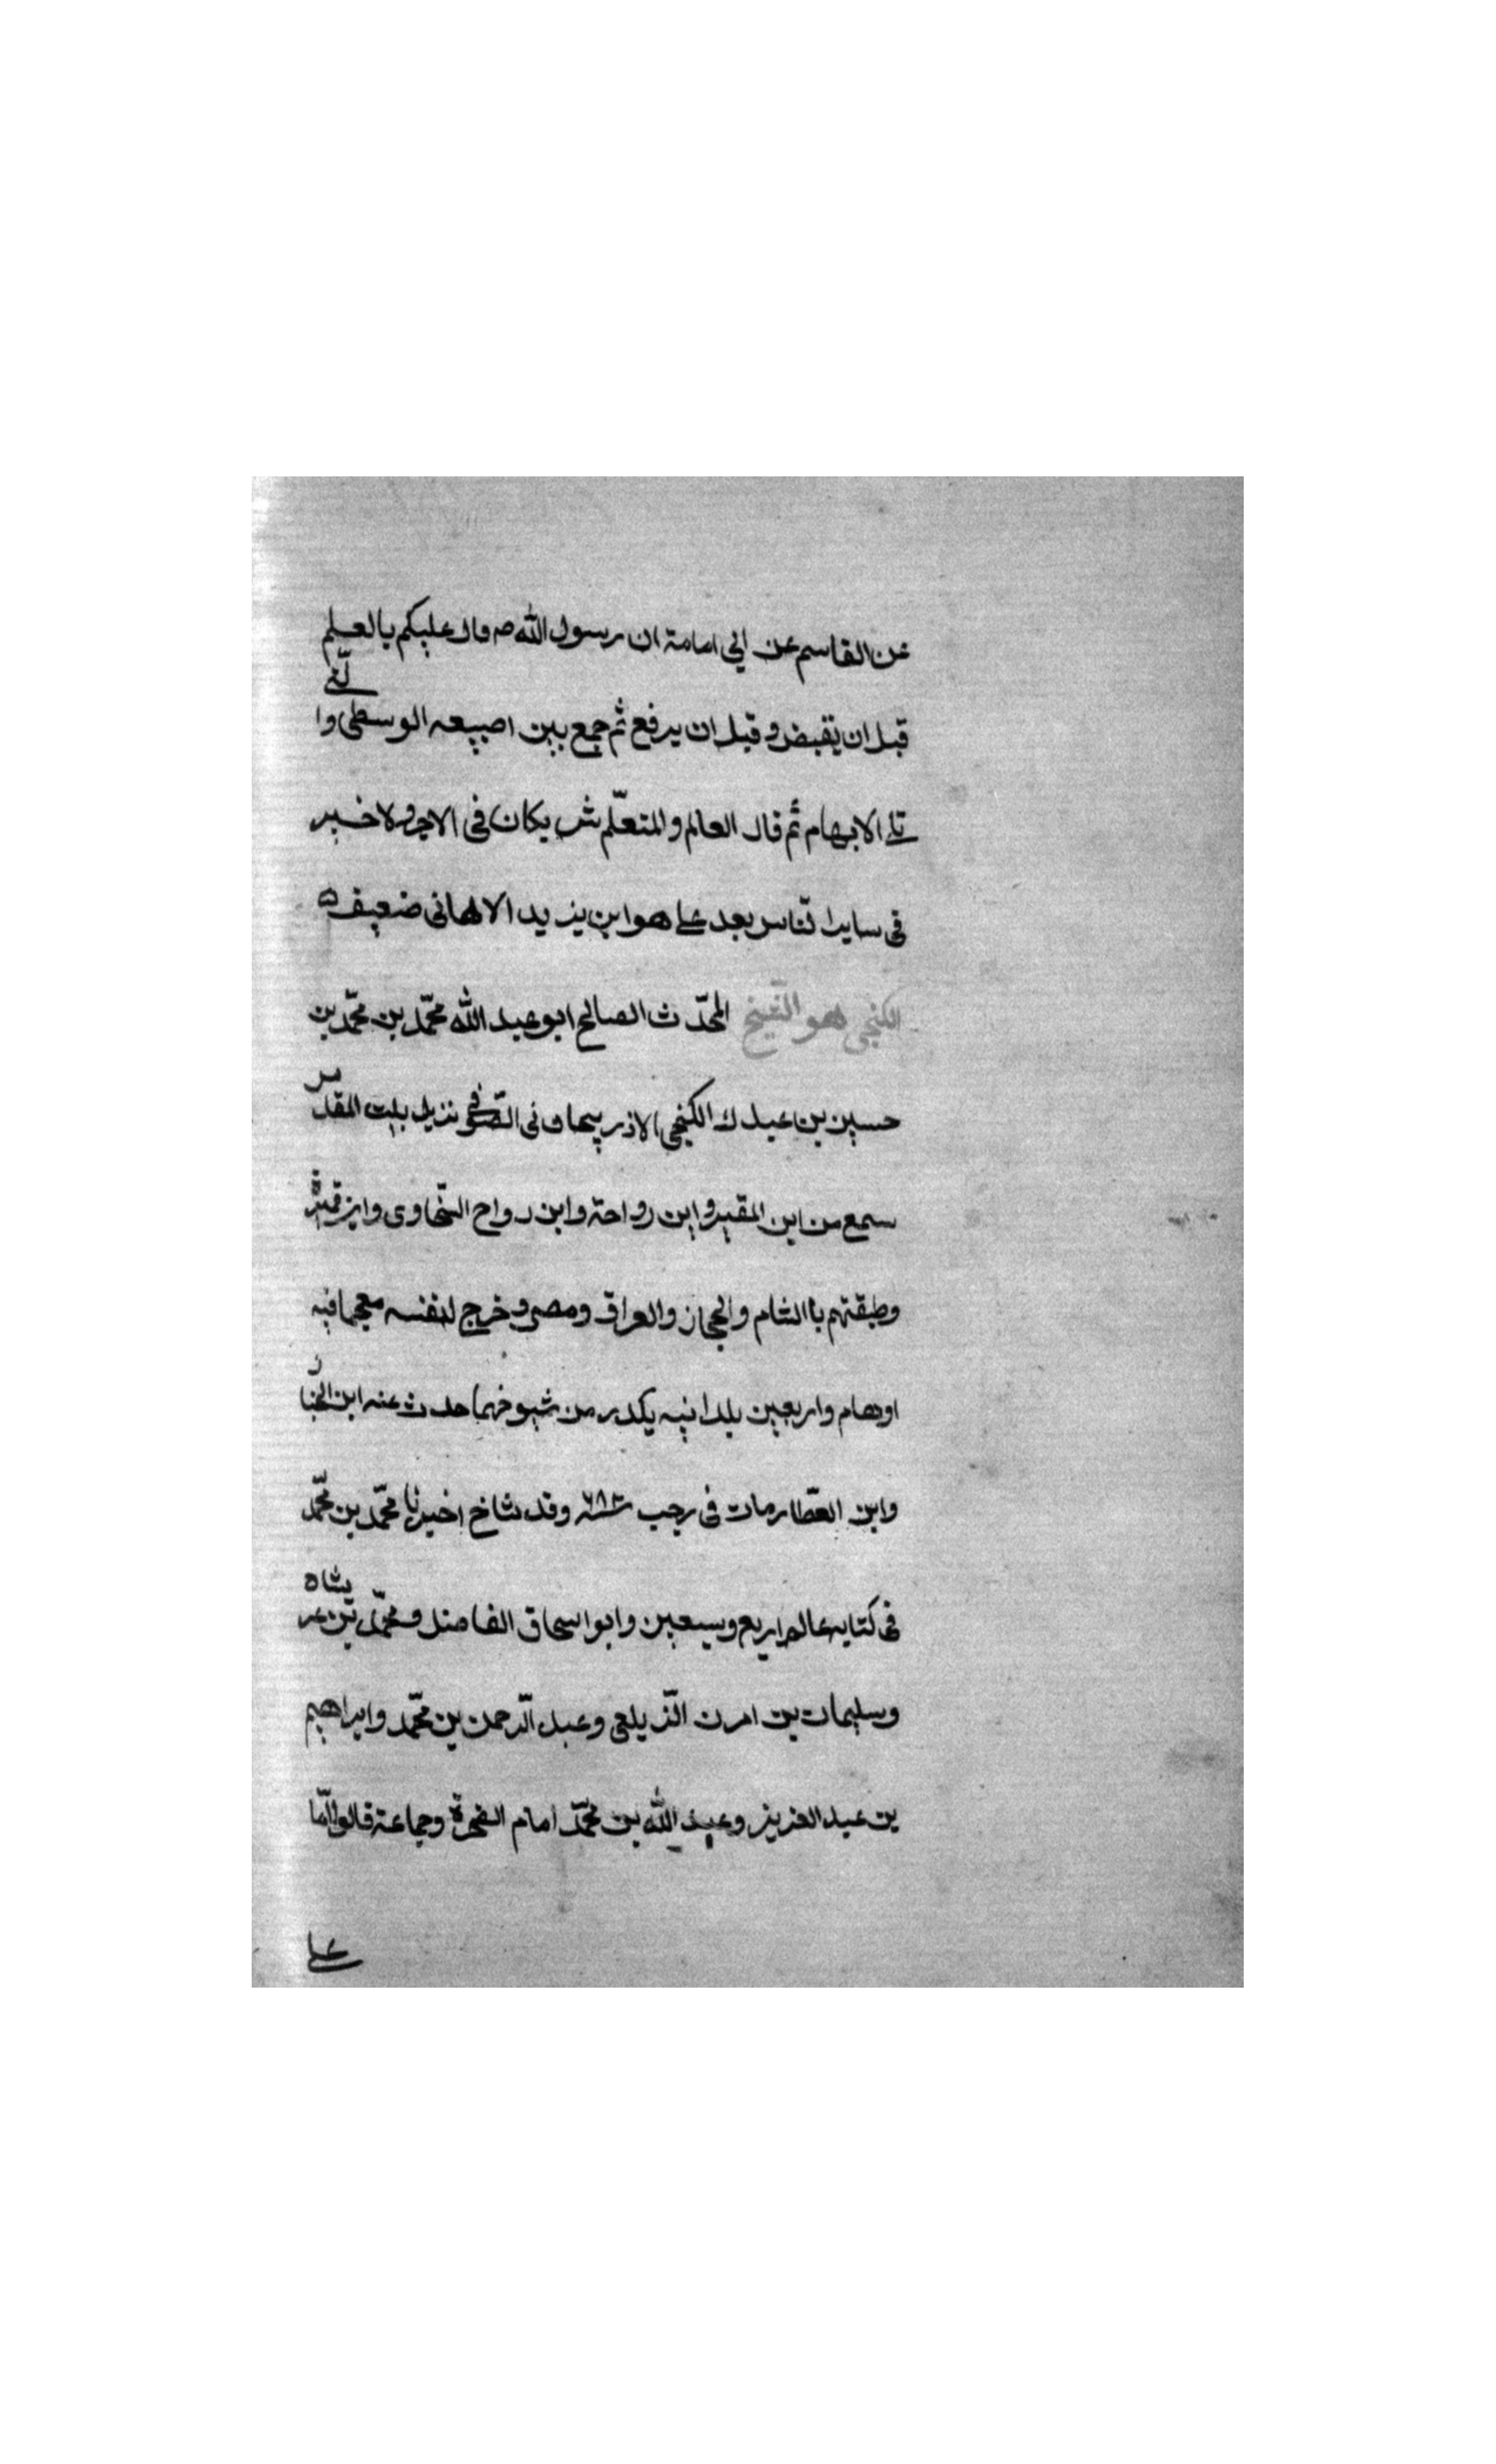 عن القاسم عن ابي امامة ان رسول الله ص قال عليكم بالعلم
قبل ان يقبض و قبل ان يرفع ثم جمع بين اصبيعه الوسطى والّتى
تلى الابهام ثم قال العالم و المتعلّم شريكان فى الاجر ولا خير
فى ساير النّاس بعد على هو ابن يزيد الالهانى ضعيف
الكنجى هو الشّيخ المحدّث الصالح ابو عبد الله محمّد بن محمّد بن
حسين بن عبدك الكنجى الاذربيجانى الصّوفى نزيل بيت المقدس
سمع من ابن المقير و ابن رواحة وابن رواح السّخاوى وابن قميرة
وطبقتهم با الشام والحجاز والعراق ومصر و خرج لنفسه معجما فيه
اوهام واربعين بلدانيه يكدر من شيوخهما حدث عنه ابن الخباز
وابن العطّار مات فى رجب ٦٨٢ وقد شاخ اخبرنا محمّد بن محمّد
فى كتابه عالم اربع وسبعين وابو اسحاق الفاضل و محمّد بن عربشاه
وسليمان بن امرن الزّيلعى وعبد الرّحمن بن محمّد وابراهيم
بن عبد العزيز وعبيد الله بن محمّد امام الفجرة وجماعة قالوا انّا
على